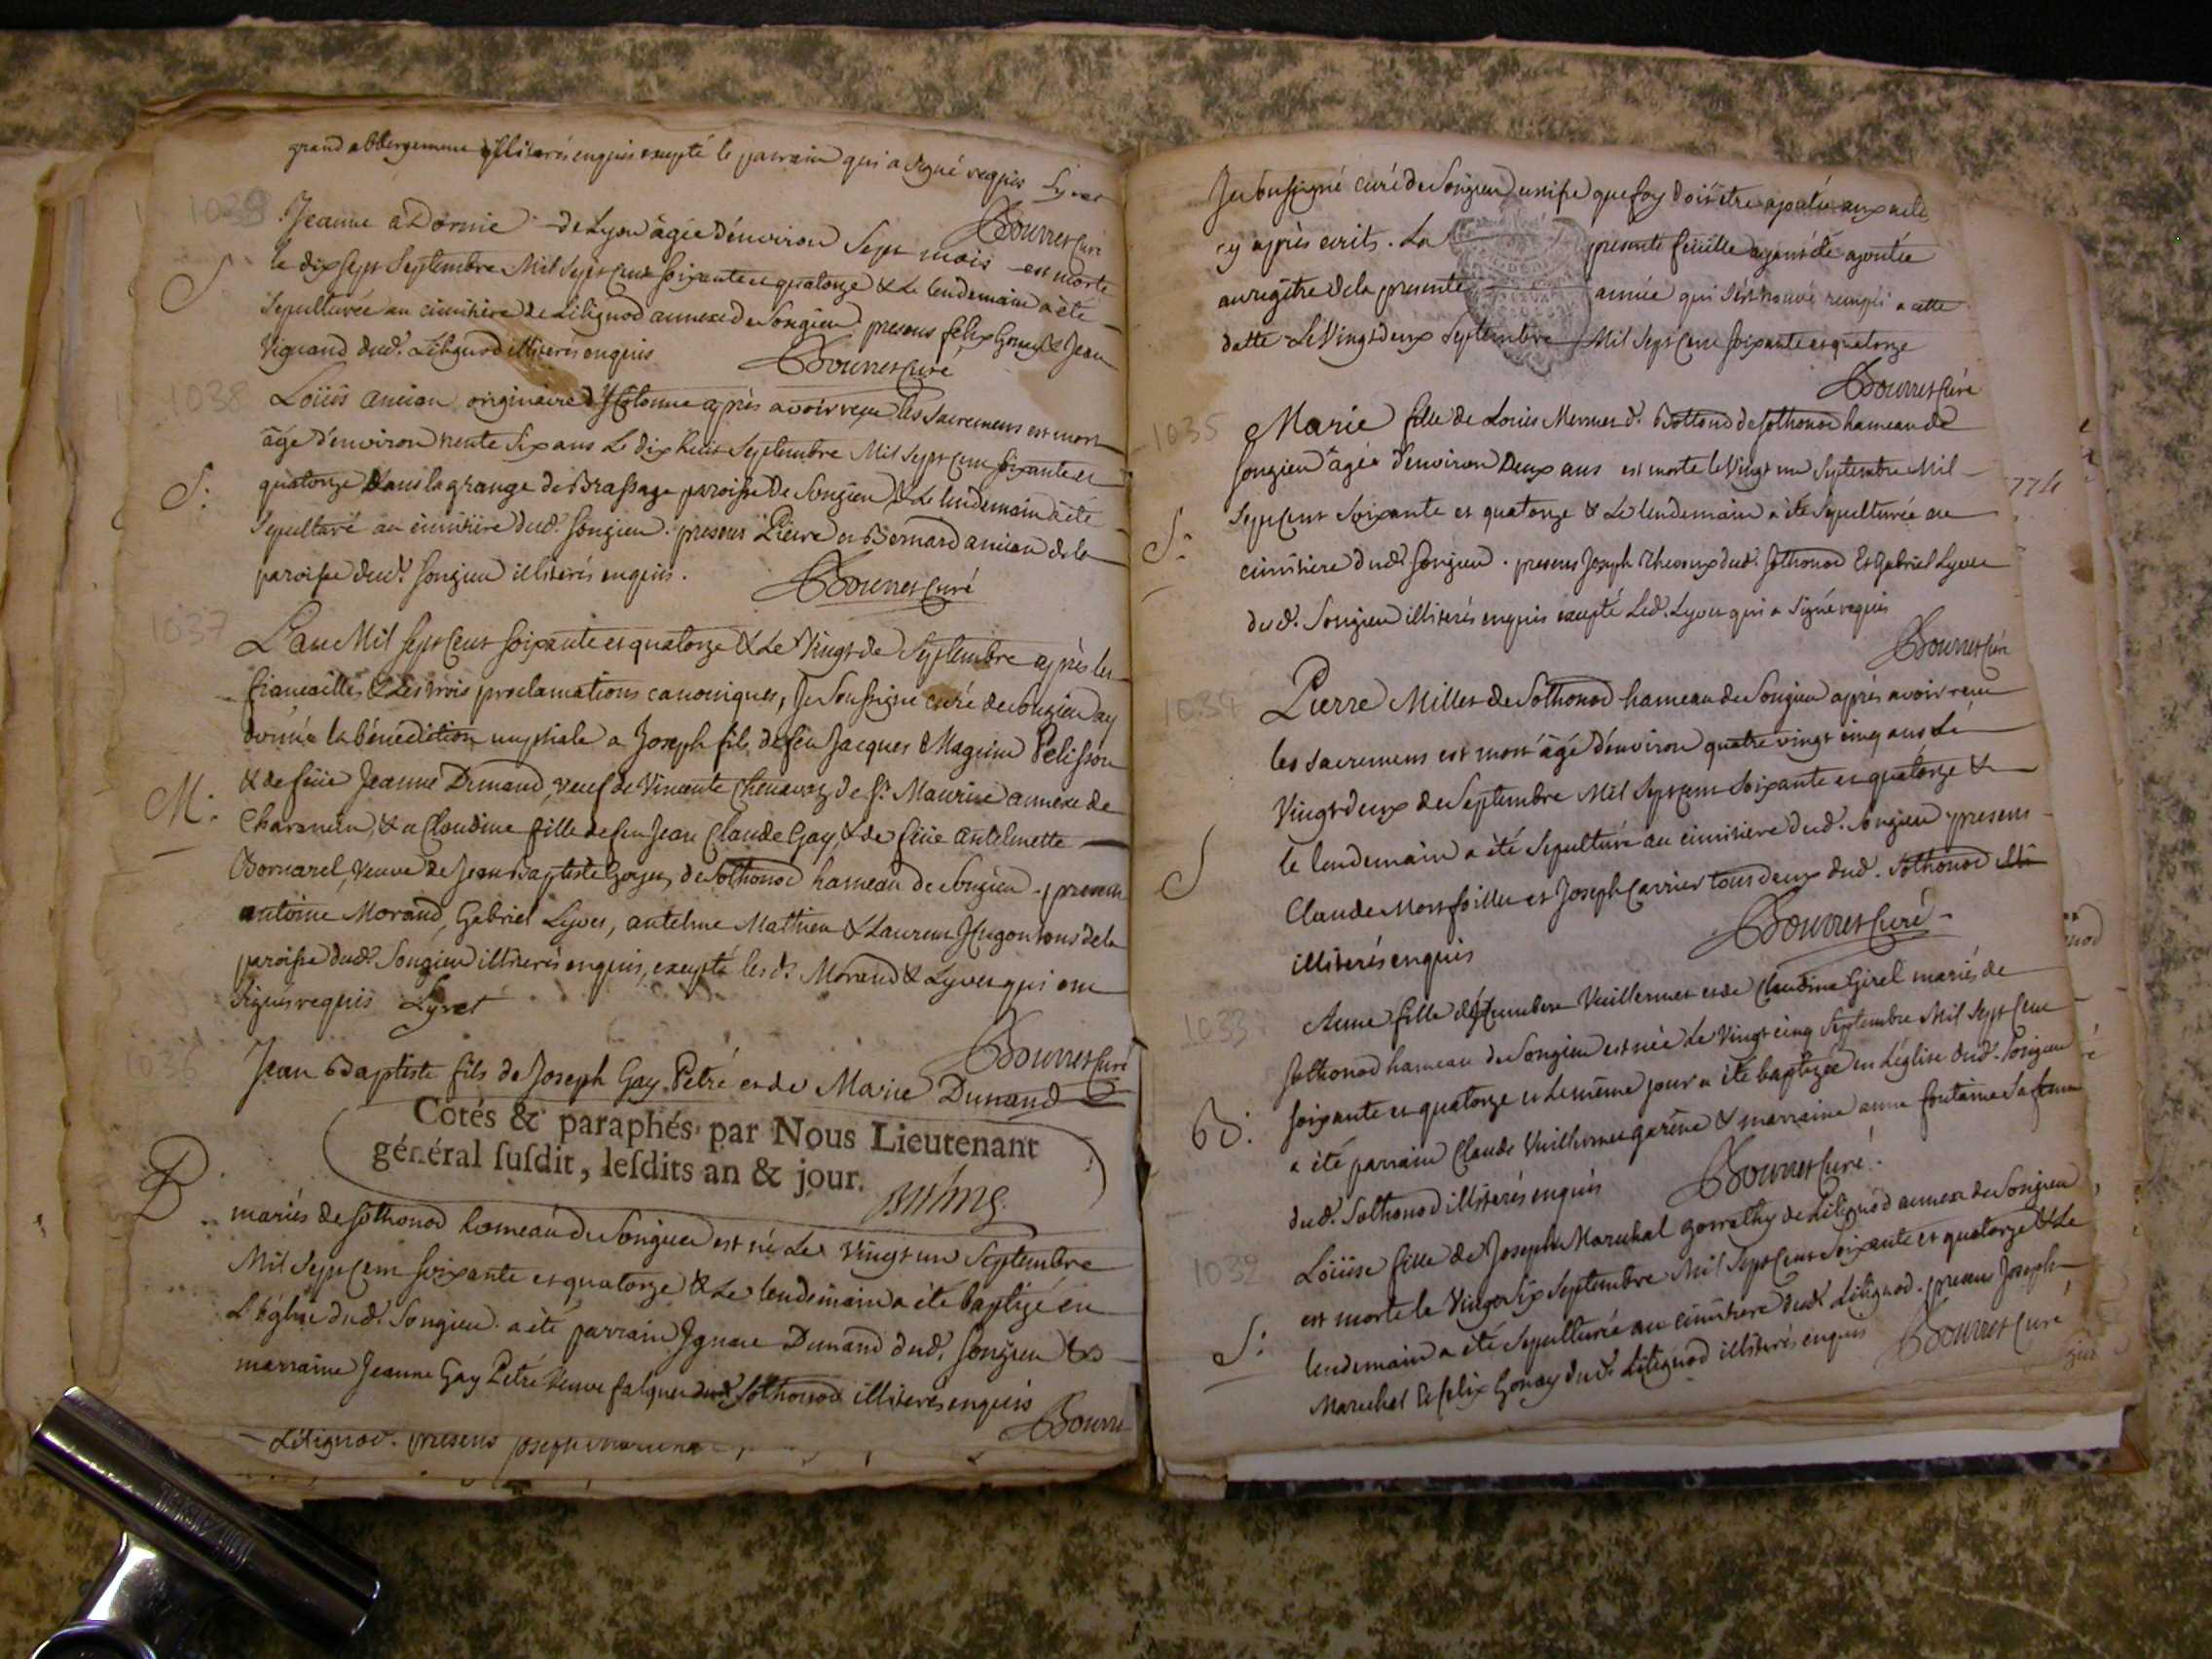 grand abbergement illiterés enquis excepté le parrain qui a signé requis Lyvet
Bourret Curé
1039
Jeanne a Domie de Lyon âgée d'environ sept mois est morte
le dix sept Septembre Mil Sept Cent soixante et quatorze & Le lendemain a été
S
sepulturée au cimitière de Lilignod annexe de Songieu presens felix Gonay & Jean
Vignand dud. Lilignod illiterés enquis
Bourret Curé
1038
Loüis ancian originaire d'Hotonne après avoir reçu les Sacremens est mort
âgé d'environ trente six ans Le dix huit Septembre Mil Sept Cent soixante et
S:
quatorze Dans la grange de Brassage paroisse de Songieu & Le lendemain a été
Sepulturé au cimitière dud. Songieu. presens Pierre et Bernard ancian de la
paroisse dud. Songieu illiterés enquis.
Bourret Curé
1037
L'an Mil Sept Cent soixante et quatorze & Le Vingt de Septembre après les
fiançailles & Les trois proclamations canoniques, Je Soussigné curé de Songieu ay
donné la bénédiction nuptiale a Joseph fils de feu Jacques Magnin Pelisson
& de feüe Jeanne Dunand, veuf de Vincente Chenavaz de St. Maurice annexe de
M:
& a Claudine fille de feu Jean Claude Gay, & de feüe Antelmette
Bornarel, Veuve de Jean Baptiste Goyet, de Sothonod hameau de Songieu. presens
antoine Morand, Gabriel Lyvet, antelme Mathieu & Laurent Hugon tous de la
paroisse dud. Songieu illiterés enquis, excepté lesd. Morand & Lyvet qui ont
signés requis Lyvet
Bourret Curé
1036
Jean Baptiste fils de Joseph Gay Petré et de Marie Dunand
Cotés & paraphés par Nous Lieutenant
général susdit, lesdits an & jour.
B
mariés de Sothonod hameau de Songieu est né Le Vingt un Septembre
Mil Sept Cent soixante et quatorze & Le lendemain a été baptizé en
L'église dud. Songieu. a été parrain Ignace Dunand dud. Songieu &
marraine Jeanne Gay Petré Veuve falquet dud. Sothonod illiterés enquis
Bourret
Lilignod. presens Joseph
Je soussigné curé de Songieu certifie que foy doit être ajoutée aux actes
cy après écrits. La presente feüille ayant été ajoutée
au regître de la presente année qui s'est trouvé rempli a cette
datte Le Vingt deux Septembre Mil Sept Cent soixante et quatorze
Bourret Curé
1035
Marie fille de Louis Mermet d. Bottond de Sothonod hameau de
Songieu âgée d'environ Deux ans est morte le Vingt un Septembre Mil
Sept Cent Soixante et quatorze & Le lendemain a été Sepulturée au
S:
cimitiere dud. Songieu. presens Joseph Thevoux dud. Sothonod Et Gabriel Lyvet
dud. Songieu illiterés enquis excepté Led. Lyvet qui a Signé requis
Bourret Curé
1034
Pierre Millet de Sothonod hameau de Songieu après avoir reçu
les sacremens est mort âgé d'environ quatre vingt cinq ans Le
Vingt deux de Septembre Mil Sept Cent Soixante et quatorze &
le lendemain a été Sepulturé au cimitiere dud. Songieu presens
S
Claude Montfoillet et Joseph Carrier tous deux dud. Sothonod
illiterés enquis
Bourret Curé
1033
Anne fille d'Humbert Vuillermet et de Claudine Girel mariés de
Sothonod hameau de Songieu est née Le Vingt cinq Septembre Mil Sept Cent
soixante et quatorze et Le même jour a été baptizée en L'église dud. Songieu
B:
a été parrain Claude Vuillermet garène & marraine anne fontaine sa femme
dud. Sothonod illiterés enquis
Bourret Curé.
1032
Loüise fille de Joseph Marechal gorrathy de Lilignod annexe de Songieu
est morte le Vingt Six Septembre Mil Sept Cent Soixante et quatorze & Le
S:
lendemain a été Sepulturée au cimitiere dud. Lilignod. presens Joseph
Marechal & felix Gonay dud. Lilignod illiterés enquis
Bourret Curé